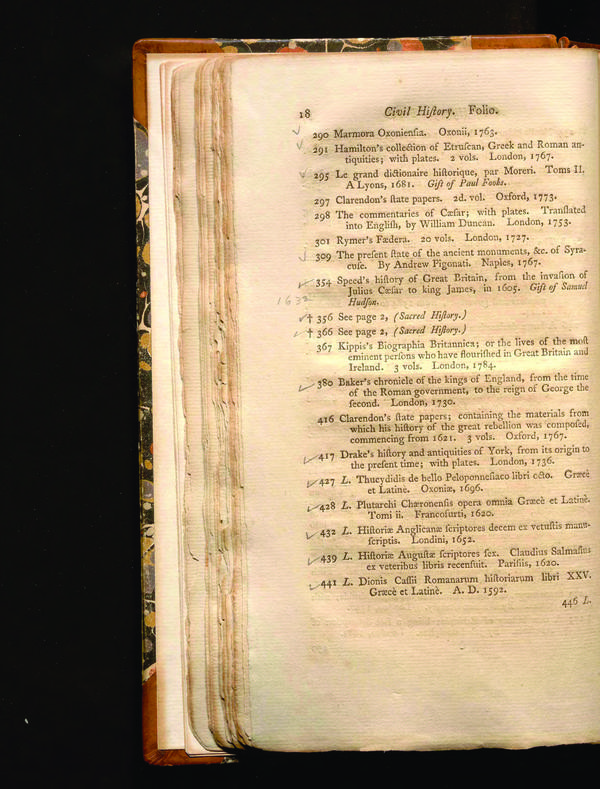 18 Civil Hiſtory. Folio.
290 Marmora Oxonienſia. Oxonii, 1763.
291 Hamilton's collection of Etruſcan, Greek and Roman an-
tiquities; with plates. 2 vols. London, 1767.
295 Le grand dictionaire hiſtorique, par Moreri. Toms II.
A Lyons, 1681. Gift of Paul Fooks.
297 Clarendon's ſtate papers. 2d. vol. Oxford, 1773.
298 The commentaries of Cæſar; with plates. Tranſlated
into Engliſh, by William Duncan. London, 1753.
301 Rymer's Fædera. 20 vols. London, 1727.
309 The preſent ſtate of the ancient monuments, &c. of Syra-
cuſe. By Andrew Pigonati. Naples, 1767.
354 Speed's hiſtory of Great Britain, from the invaſion of
Julius Cæſar to king James, in 1605. Gift of Samuel
1632 Hudſon.
† 356 See page 2, (Sacred Hiſtory.)
† 366 See page 2, (Sacred Hiſtory.)
367 Kippis's Biographia Britannica; or the lives of the moſt
eminent perſons who have flouriſhed in Great Britain and
Ireland. 3 vols. London, 1784.
380 Baker's chronicle of the kings of England, from the time
of the Roman government, to the reign of George the
ſecond. London, 1730.
416 Clarendon's ſtate papers; containing the materials from
which his hiſtory of the great rebellion was compoſed,
commencing from 1621. 3 vols. Oxford, 1767.
417 Drake's hiſtory and antiquities of York, from its origin to
the preſent time; with plates. London, 1736.
427 L. Thucydidis de bello Peloponneſiaco libri octo. Græcè
et Latinè. Oxoniæ, 1696.
428 L. Plutarchi Chæronenſis opera omnia Græcè et Latinè.
Tomi ii. Francofurti, 1620.
432 L. Hiſtoriæ Anglicanæ ſcriptores decem ex vetuſtis manu-
ſcriptis. Londini, 1652.
439 L. Hiſtoriæ Auguſtæ ſcriptores ſex. Claudius Salmaſius
ex veteribus libris recenſuit. Pariſiis, 1620.
441 L. Dionis Caſſii Romanarum hiſtoriarum libri XXV.
Græcè et Latinè. A. D. 1592.
446 L.